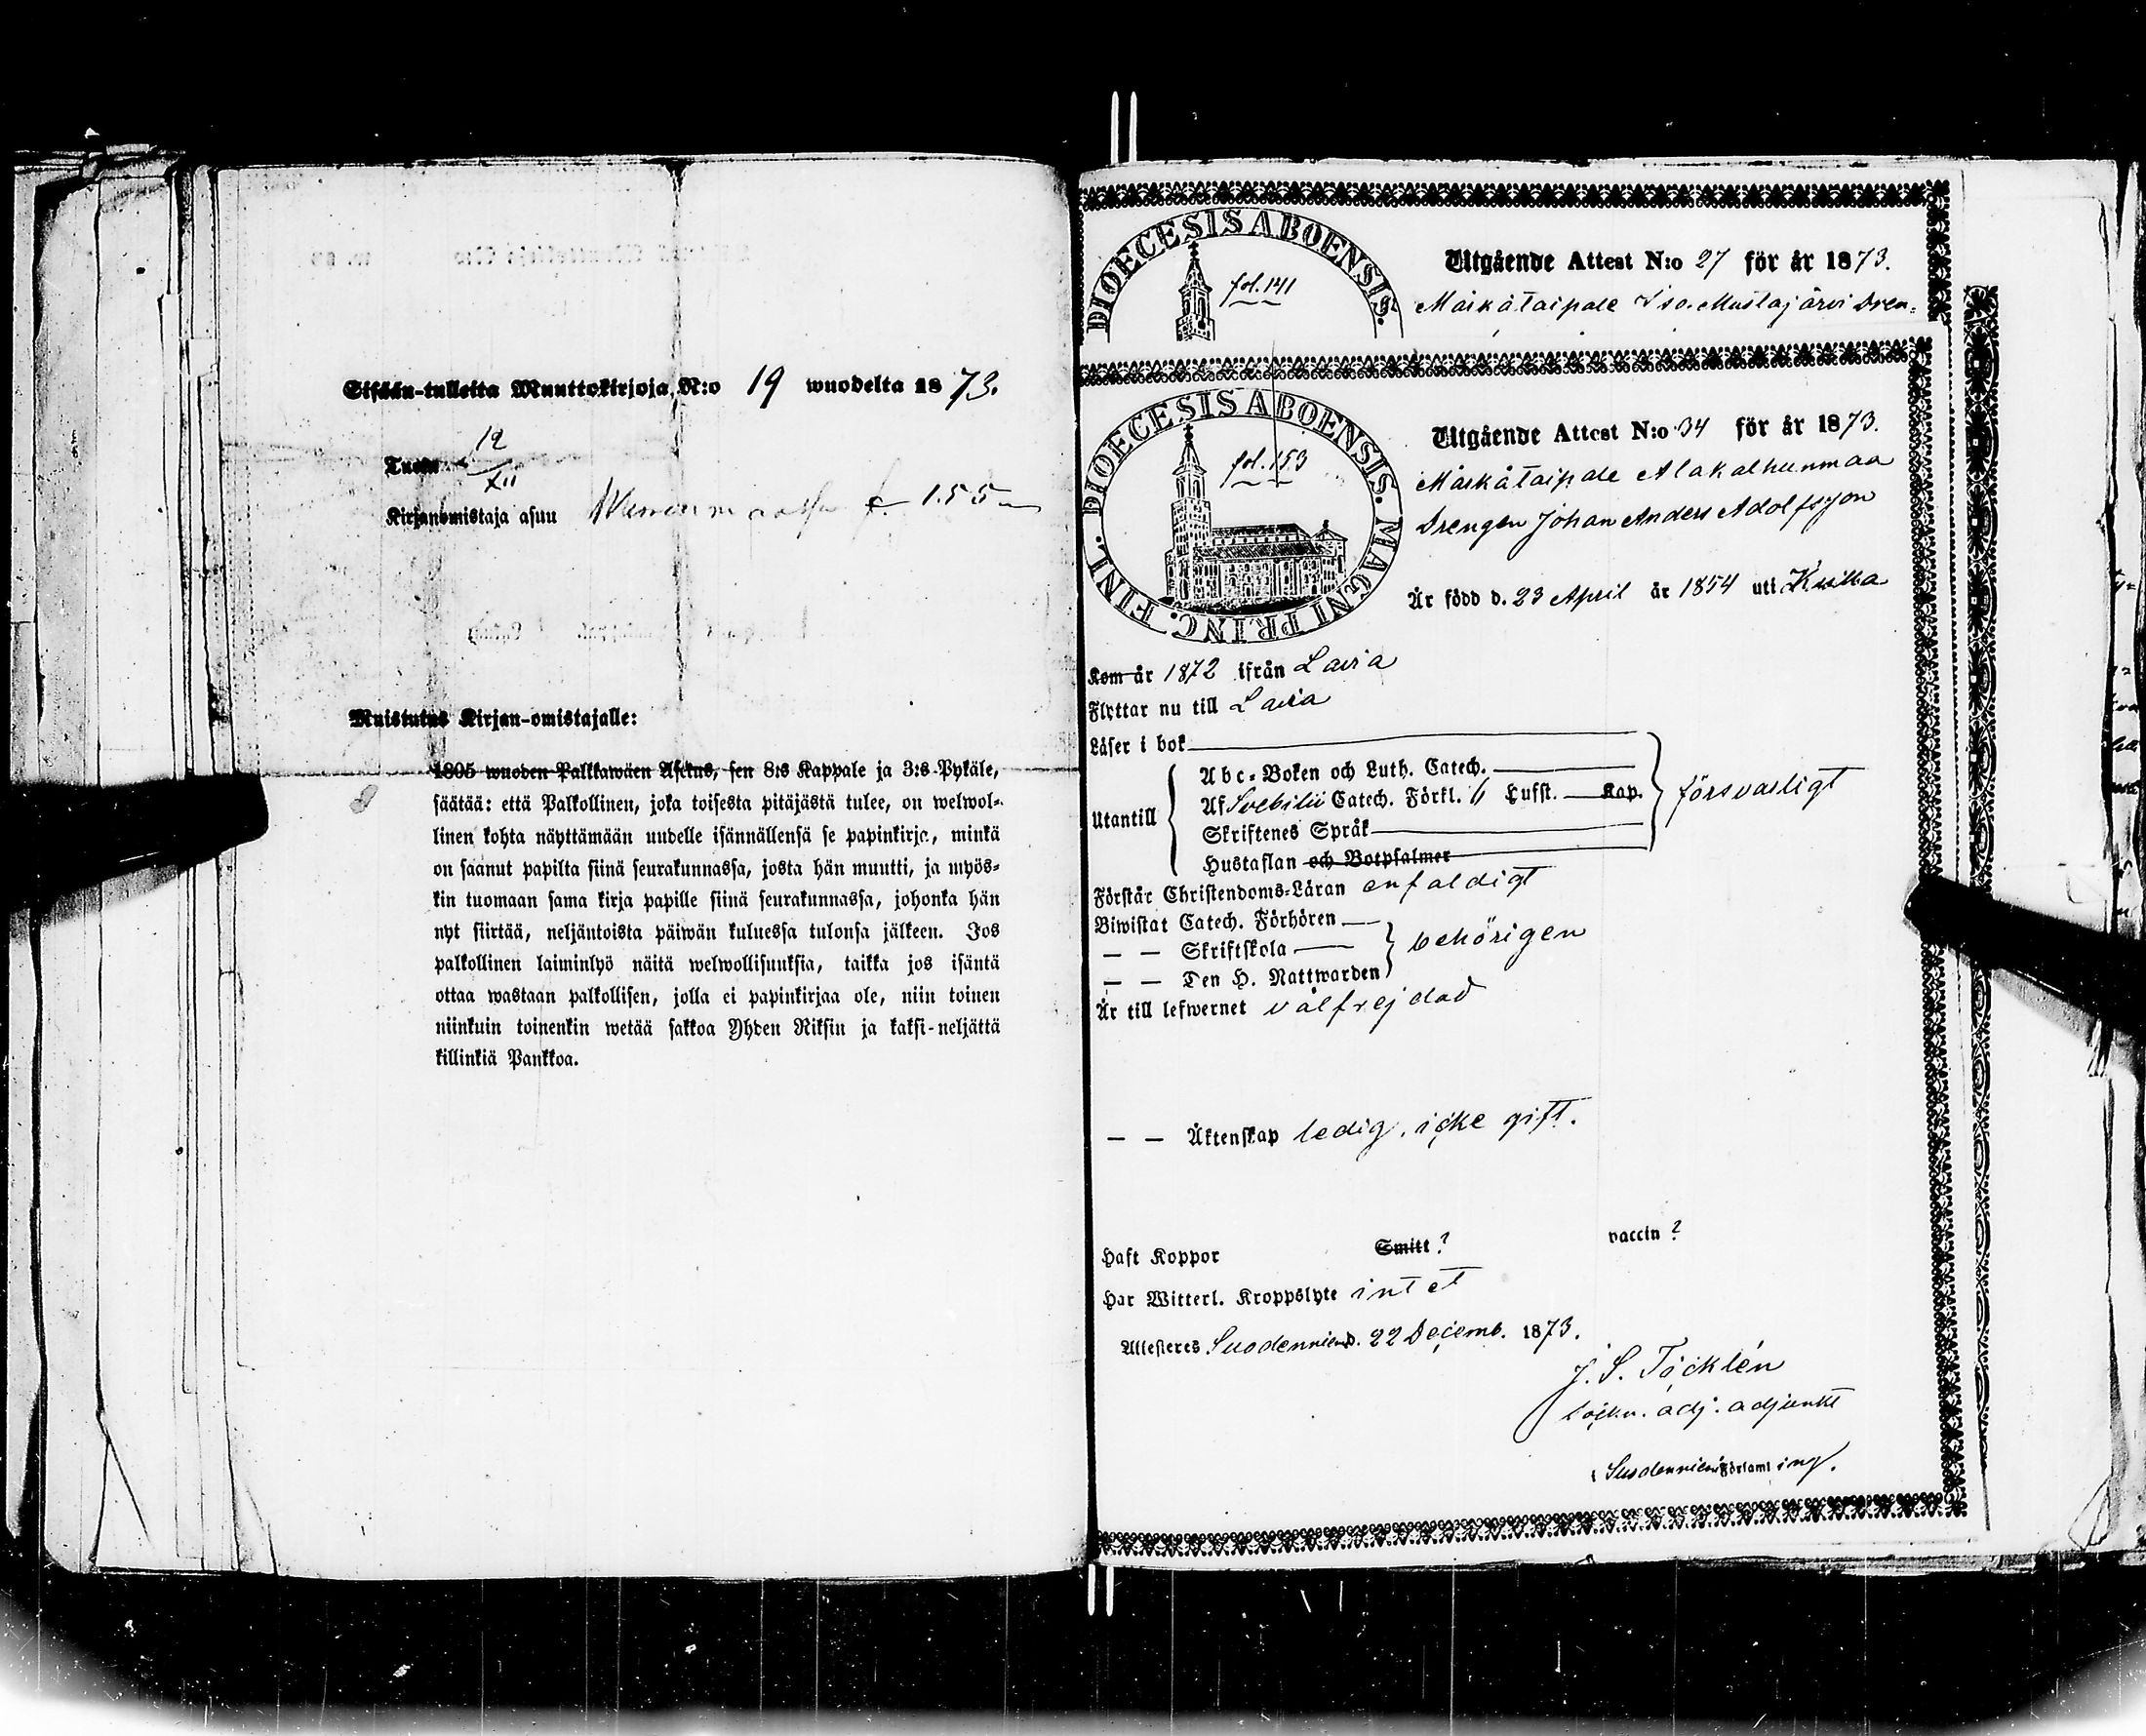 Sisään-tulleita Muuttokirjoja, N:o 19 wuodelta 1873.
Tuotu 12/XII
Kirjanomistaja asuu f. 155
Muistutus Kirjan-omistajalle:
1805 wuoden Palkkawäen Asetus, sen 8:s Kappale ja 3:s Pykäle,
säätää: että Palkollinen, joka toisesta pitäjästä tulee, on welwol-
linen kohta näyttämään uudelle isännällensä se papinkirja, minkä
on saanut papilta siinä seurakunnassa, josta hän muutti, ja myös-
kin tuomaan sama kirja papille siinä seurakunnassa, johonka hän
nyt siirtää, neljäntoista päiwän kuluessa tulonsa jälkeen. Jos
palkollinen laiminlyö näitä welwollisuuksia, taikka jos isäntä
ottaa wastaan palkollisen, jolla ei papinkirjaa ole, niin toinen
niinkuin toinenkin wetää sakkoa Yhden Riksin ja kaksi-neljättä
killinkiä Pankkoa.
DIOECESIS ABOENSIS.
fol. 141
Utgående Attest N:o 27 för år 1873.
Måskåtaipale Iso-Mustajärvi Dren-
DIOECESIS ABOENSIS. MAGNI PRINC. FINL.
fol. 153
Utgående Attest N:o 34 för år 1873.
Måskåtaipale Alakalhunmaa
Drengen Johan Anders Adolfsson
Är född d. 23 April år 1854 uti Kuilla
Kom år 1872 ifrån Lavia
Flyttar nu till Lavia
Läser i bok
Utantill
Abc-Boken och Luth. Catech.
Af Svebilii Catech. Förkl. " Lufft. Kap.
Skriftenes Språk
Hustaflan och Botpsalmer
försvarligt
Förstår Christendoms-Läran enfaldigt
Biwistat Catech. Förhören
— — Skriftskola
— — Den H. Nattwarden
behörigen
Är till lefwernet välfrejdad
— — Äktenskap ledig, icke gift.
Haft Koppor Smitt? vaccin?
Har Witterl. Kroppslyte intet
Attesteres Suodenniemi d. 22 Decemb. 1873.
J. S. Täcklén
sockn. adj. adjunkt
Suodenniemi Förlaml ing.